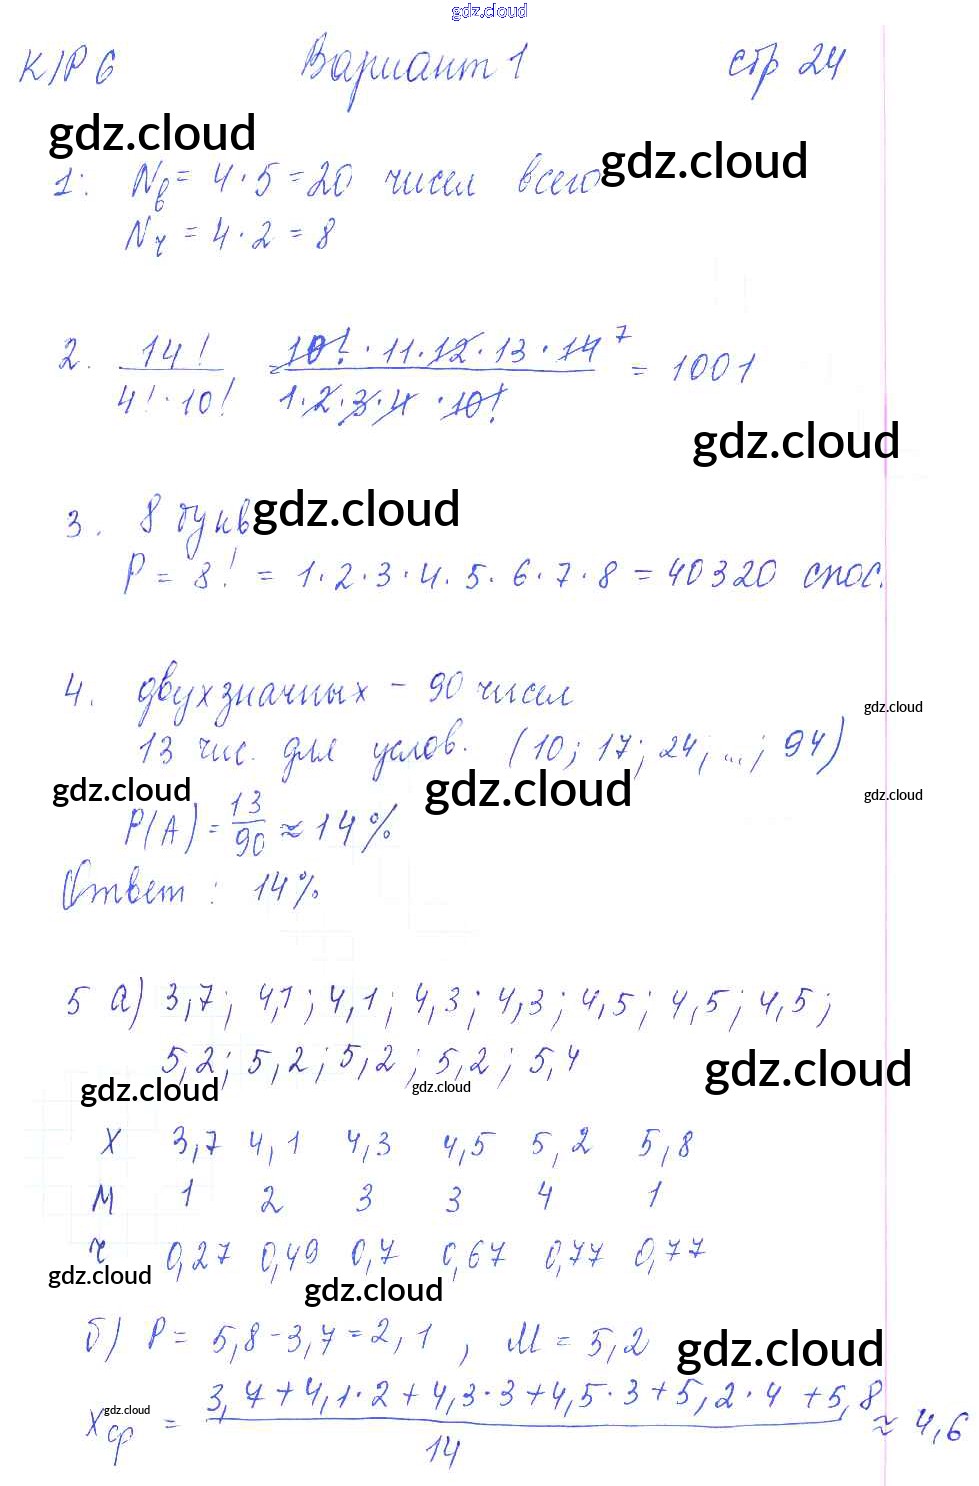 gdz.cloud
К/Р 6 Вариант 1 стр 24
gdz.cloud
gdz.cloud
1. Nв = 4 · 5 = 20 чисел всего
Nч = 4 · 2 = 8
2. 14! / 4! · 10! 10! · 11 · 12 · 13 · 14 7 / 1 · 2 · 3 · 4 · 10! = 1001
gdz.cloud
3. 8 букв
gdz.cloud
P = 8! = 1 · 2 · 3 · 4 · 5 · 6 · 7 · 8 = 40320 спос.
4. двухзначных – 90 чисел
gdz.cloud
13 чис. для услов. (10; 17; 24; ...; 94)
gdz.cloud gdz.cloud gdz.cloud
P(A) = 13/90 ≈ 14%
Ответ: 14%
5 а) 3,7; 4,1; 4,1; 4,3; 4,3; 4,5; 4,5; 4,5;
5,2; 5,2; 5,2; 5,2; 5,4
gdz.cloud gdz.cloud gdz.cloud
X 3,7 4,1 4,3 4,5 5,2 5,8
M 1 2 3 3 4 1
ч 0,27 0,49 0,7 0,67 0,77 0,77
gdz.cloud gdz.cloud
б) P = 5,8 – 3,7 = 2,1, M = 5,2
gdz.cloud
Xср = 3,7 + 4,1 · 2 + 4,3 · 3 + 4,5 · 3 + 5,2 · 4 + 5,8 / 14 ≈ 4,6
gdz.cloud